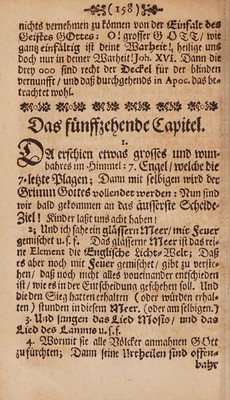 (158)
nichts vernehmen zu können von der Einfalt des
Geistes GOttes: O! grosser GOTT / wie
gantz einfältig ist deine Warheit!, heilige uns
doch nur in deiner Warheit! Joh. XVI. Dann die
drey 000 sind recht der Deckel für der blinden
vernunfft / und daß durchgehends in Apoc. das be-
trachtet wohl.
Das fünffzehende Capitel.
1.
DA erschien etwas grosses und wun-
bahres im Himmel: 7. Engel / welche die
7. letzte Plagen; Dann mit selbigen wird der
Grimm Gotts vollendet werden: Nun sind
wir bald gekommen an das äusserste Scheide-
Ziel! Kinder laßt uns acht haben!
2; Und ich sahe ein gläsern Meer / mit Feuer
gemischet u. s. f. Das gläsern Meer ist das rei-
ne Element die Englische Licht-Welt; Daß
es aber noch mit Feuer gemischet / gibt zu verste-
hen / daß noch nicht alles voneinander entschieden
ist / wie es in der Entscheidung geschehen soll. Und
die den Sieg hatten erhalten (oder würden erhal-
ten) stunden in diesem Meer. (oder am selbigen.)
3. Und sangen das Lied Mosis / und das
Lied des Lamms u. s. f.
4. Wormit sie alle Völcker anmahnen GOtt
zu fürchten; Dann seine Urtheilen sind offen-
bahr